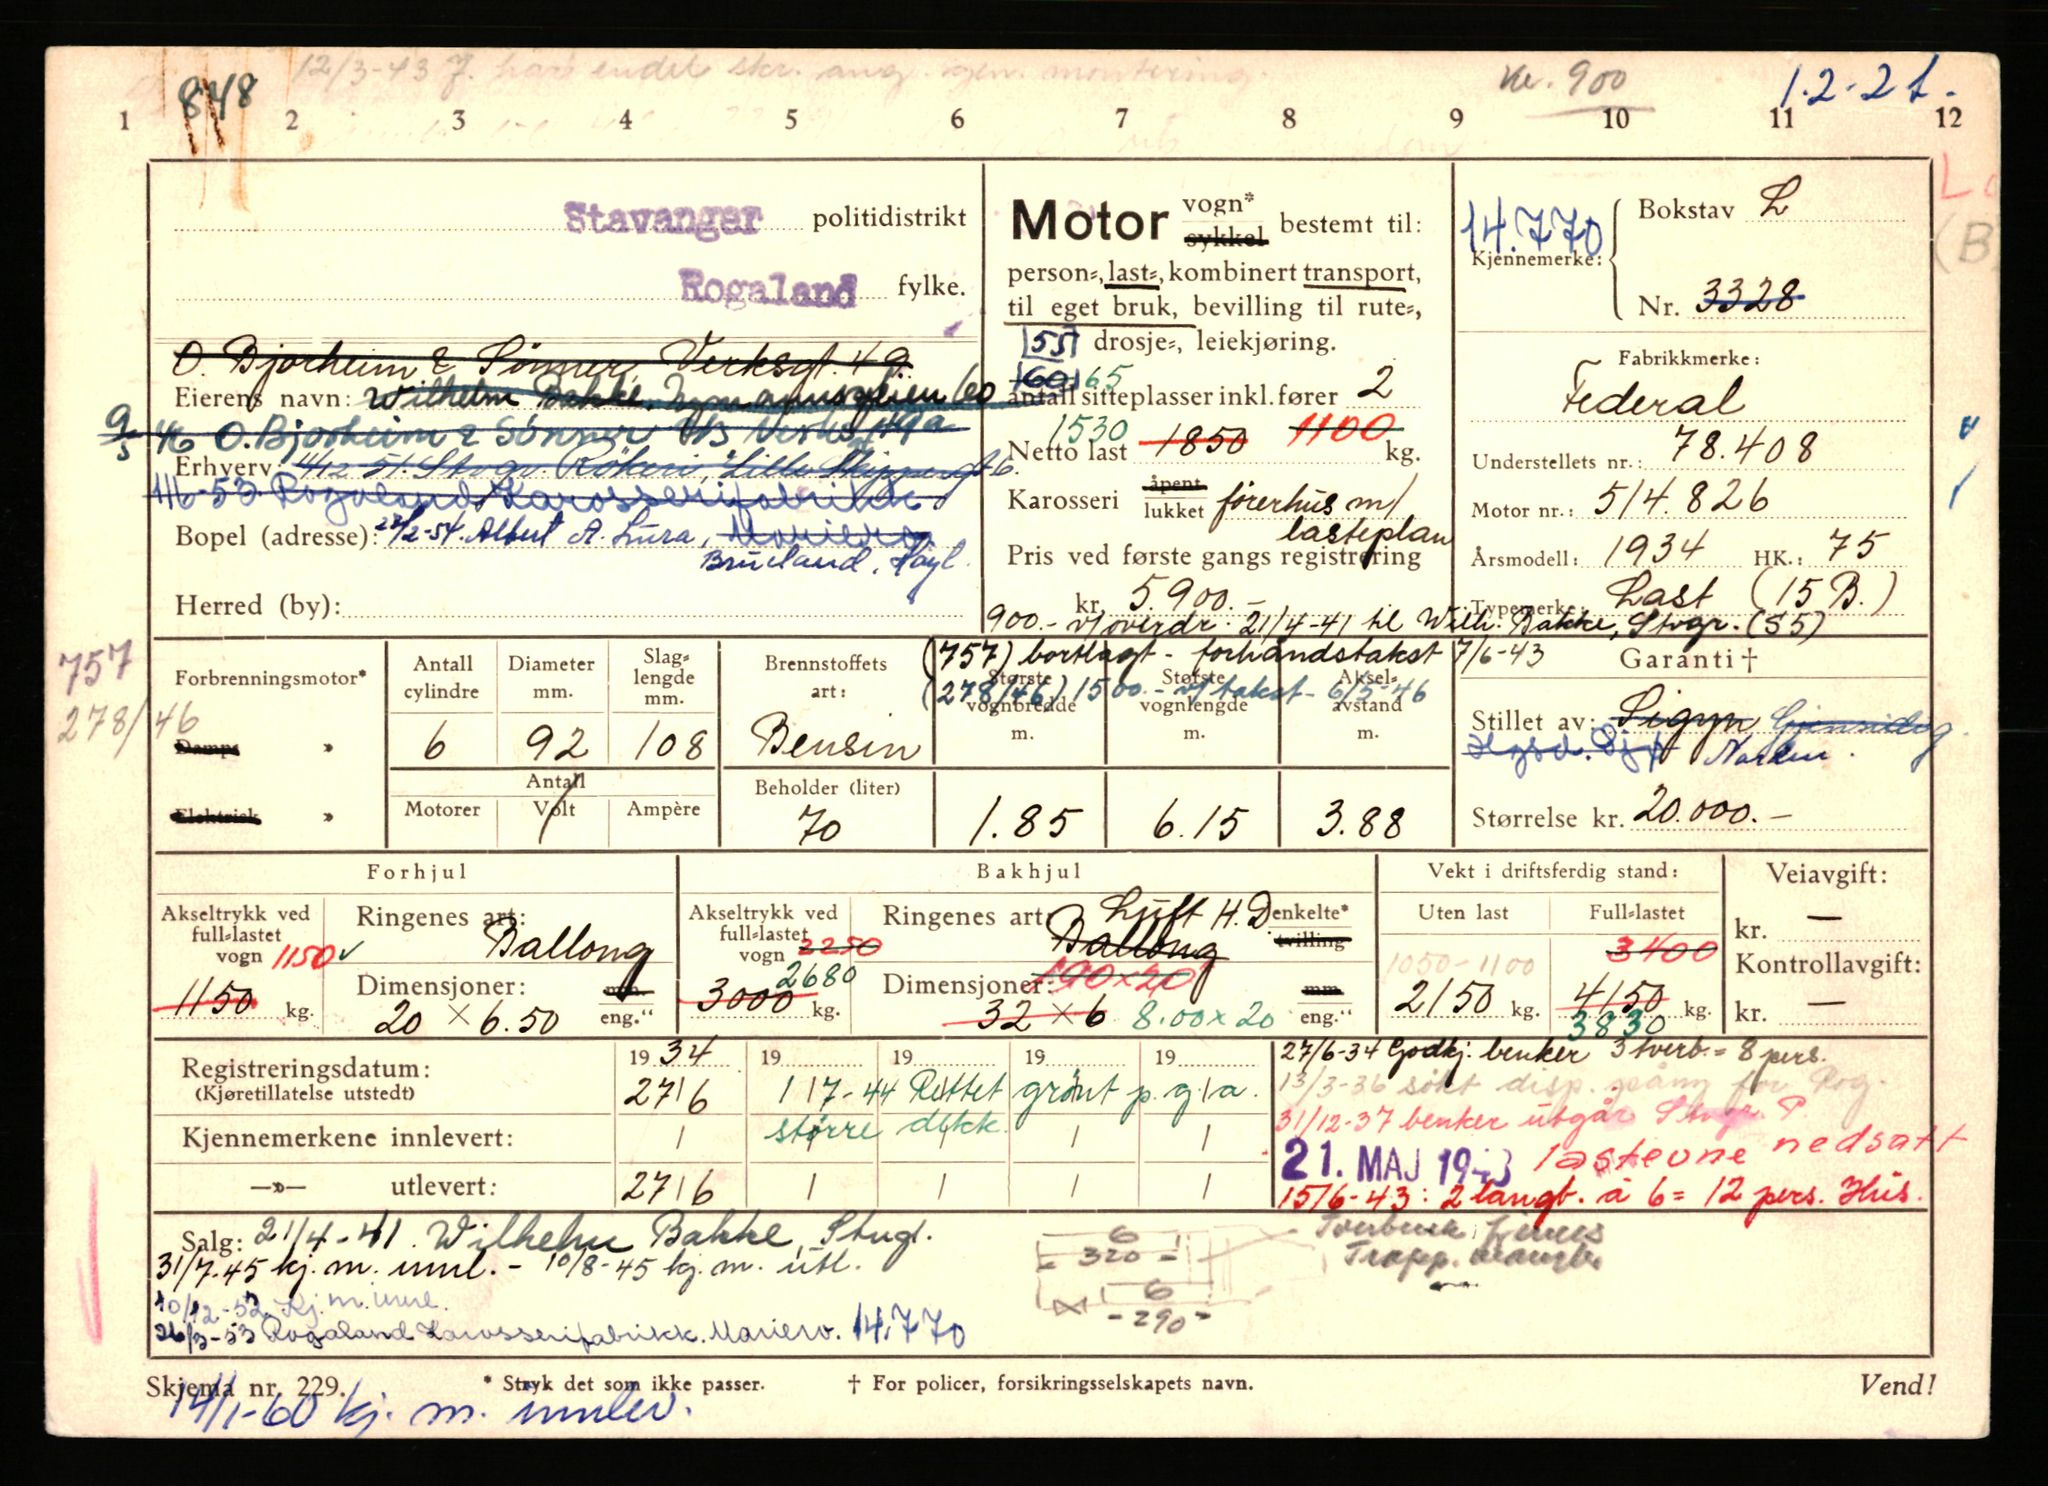 12/3-43 J. har endel skr. ang. gen. montering.
848
Kr. 900
1.2-21.
1 2 3 4 5 6 7 8 9 10 11 12
Stavanger politidistrikt
Rogaland fylke.
O. Bjorheim & Sønner, Verksgt. 49.
Eierens navn: Wilhelm Bakke,
9/5 46 O. Bjorheim & Sønner
Erhverv: 4/12-51. Stvgr. Røkeri, Lille Skippergt. 6.
1/6-53. Rogaland Karosserifabrikk
Bopel (adresse): 22/2-54. Albert A. Lura, Mariero
Brueland, Høyl.
Herred (by):
Motor vogn* sykkel bestemt til:
person-, last-, kombinert transport,
til eget bruk, bevilling til rute-,
55 drosje-, leiekjøring.
60 65
antall sitteplasser inkl. fører 2
1530
Netto last 1850 1100 kg.
Karosseri åpent lukket førerhus m/
lasteplan
Pris ved første gangs registrering
kr. 5.900.-
900.- v/overdr. 21/4-41 til Wilh. Bakke, Stvgr. (55)
(757) bortlagt - forhåndstakst 7/6-43
(278/46) 1500.- v/takst- 6/5-46
14.770
Bokstav L
Kjennemerke:
Nr. 3328
Fabrikkmerke:
Federal
Understellets nr.: 78.408
Motor nr.: 514.826
Årsmodell: 1934 HK.: 75
Typemerke: Last (15 B.)
Garanti †
Stillet av: Sigyn Gjensidig.
Norden.
Størrelse kr. 20.000.-
757
278/46
Forbrenningsmotor*
Damp »
Elektrisk »
Antall cylindre 6
Diameter mm. 92
Slag-lengde mm. 108
Antall
Motorer Volt Ampère
Brennstoffets art: Bensin
Beholder (liter) 70
Største vognbredde m. 1.85
Største vognlengde m. 6.15
Aksel-avstand m. 3.88
Forhjul
Akseltrykk ved full-lastet vogn 1150
1150 kg.
Ringenes art: Ballong
Dimensjoner: mm.
20 × 6.50 eng."
Bakhjul
Akseltrykk ved full-lastet vogn 2250
2680
3000 kg.
Ringenes art: Luft H.D. enkelte*
Ballong tvilling
Dimensjoner: 190×20 mm
32 × 6 8.00 × 20 eng."
Vekt i driftsferdig stand:
Uten last Full-lastet
1050-1100 3400
2150 kg. 4150 kg.
3830
Veiavgift:
kr. —
Kontrollavgift:
kr. —
Registreringsdatum: 19 34 19 19 19 19
(Kjøretillatelse utstedt) 27/6 1/7-44 Rettet grønt p.g.a.
Kjennemerkene innlevert: større dekk.
—»— utlevert: 27/6
27/6-34 Godkj. benker 3 tverb. = 8 pers.
13/3-36 søkt disp. for Rog.
31/12-37 benker utgår Stvgr. P.
21. MAJ 1943 lasteevne nedsatt
15/6-43: 2 langb. à 6 = 12 pers. Hus.
Salg: 21/4-41. Wilhelm Bakke, Stvgr.
31/7-45 kj. m. innl. - 10/8-45 kj. m. utl.
10/12-52. Kj. m. innl.
26/3-53 Rogaland Karosserifabrikk. Mariero. 14.770
6
320
6
-290-
Tverbenk finnes
Trapp. mangler
Skjema nr. 229. * Stryk det som ikke passer. † For policer, forsikringsselskapets navn. Vend!
14/1-60 kj. m. innlev.